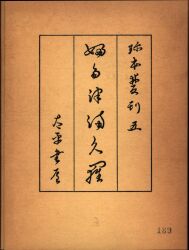 珍本叢刊五
婦多津満久羅
太平書屋
189